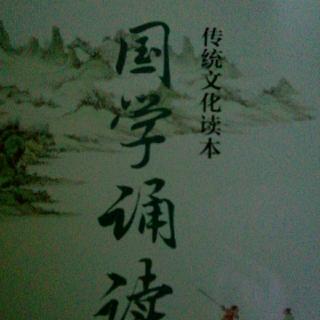 传统文化读本
国学诵读